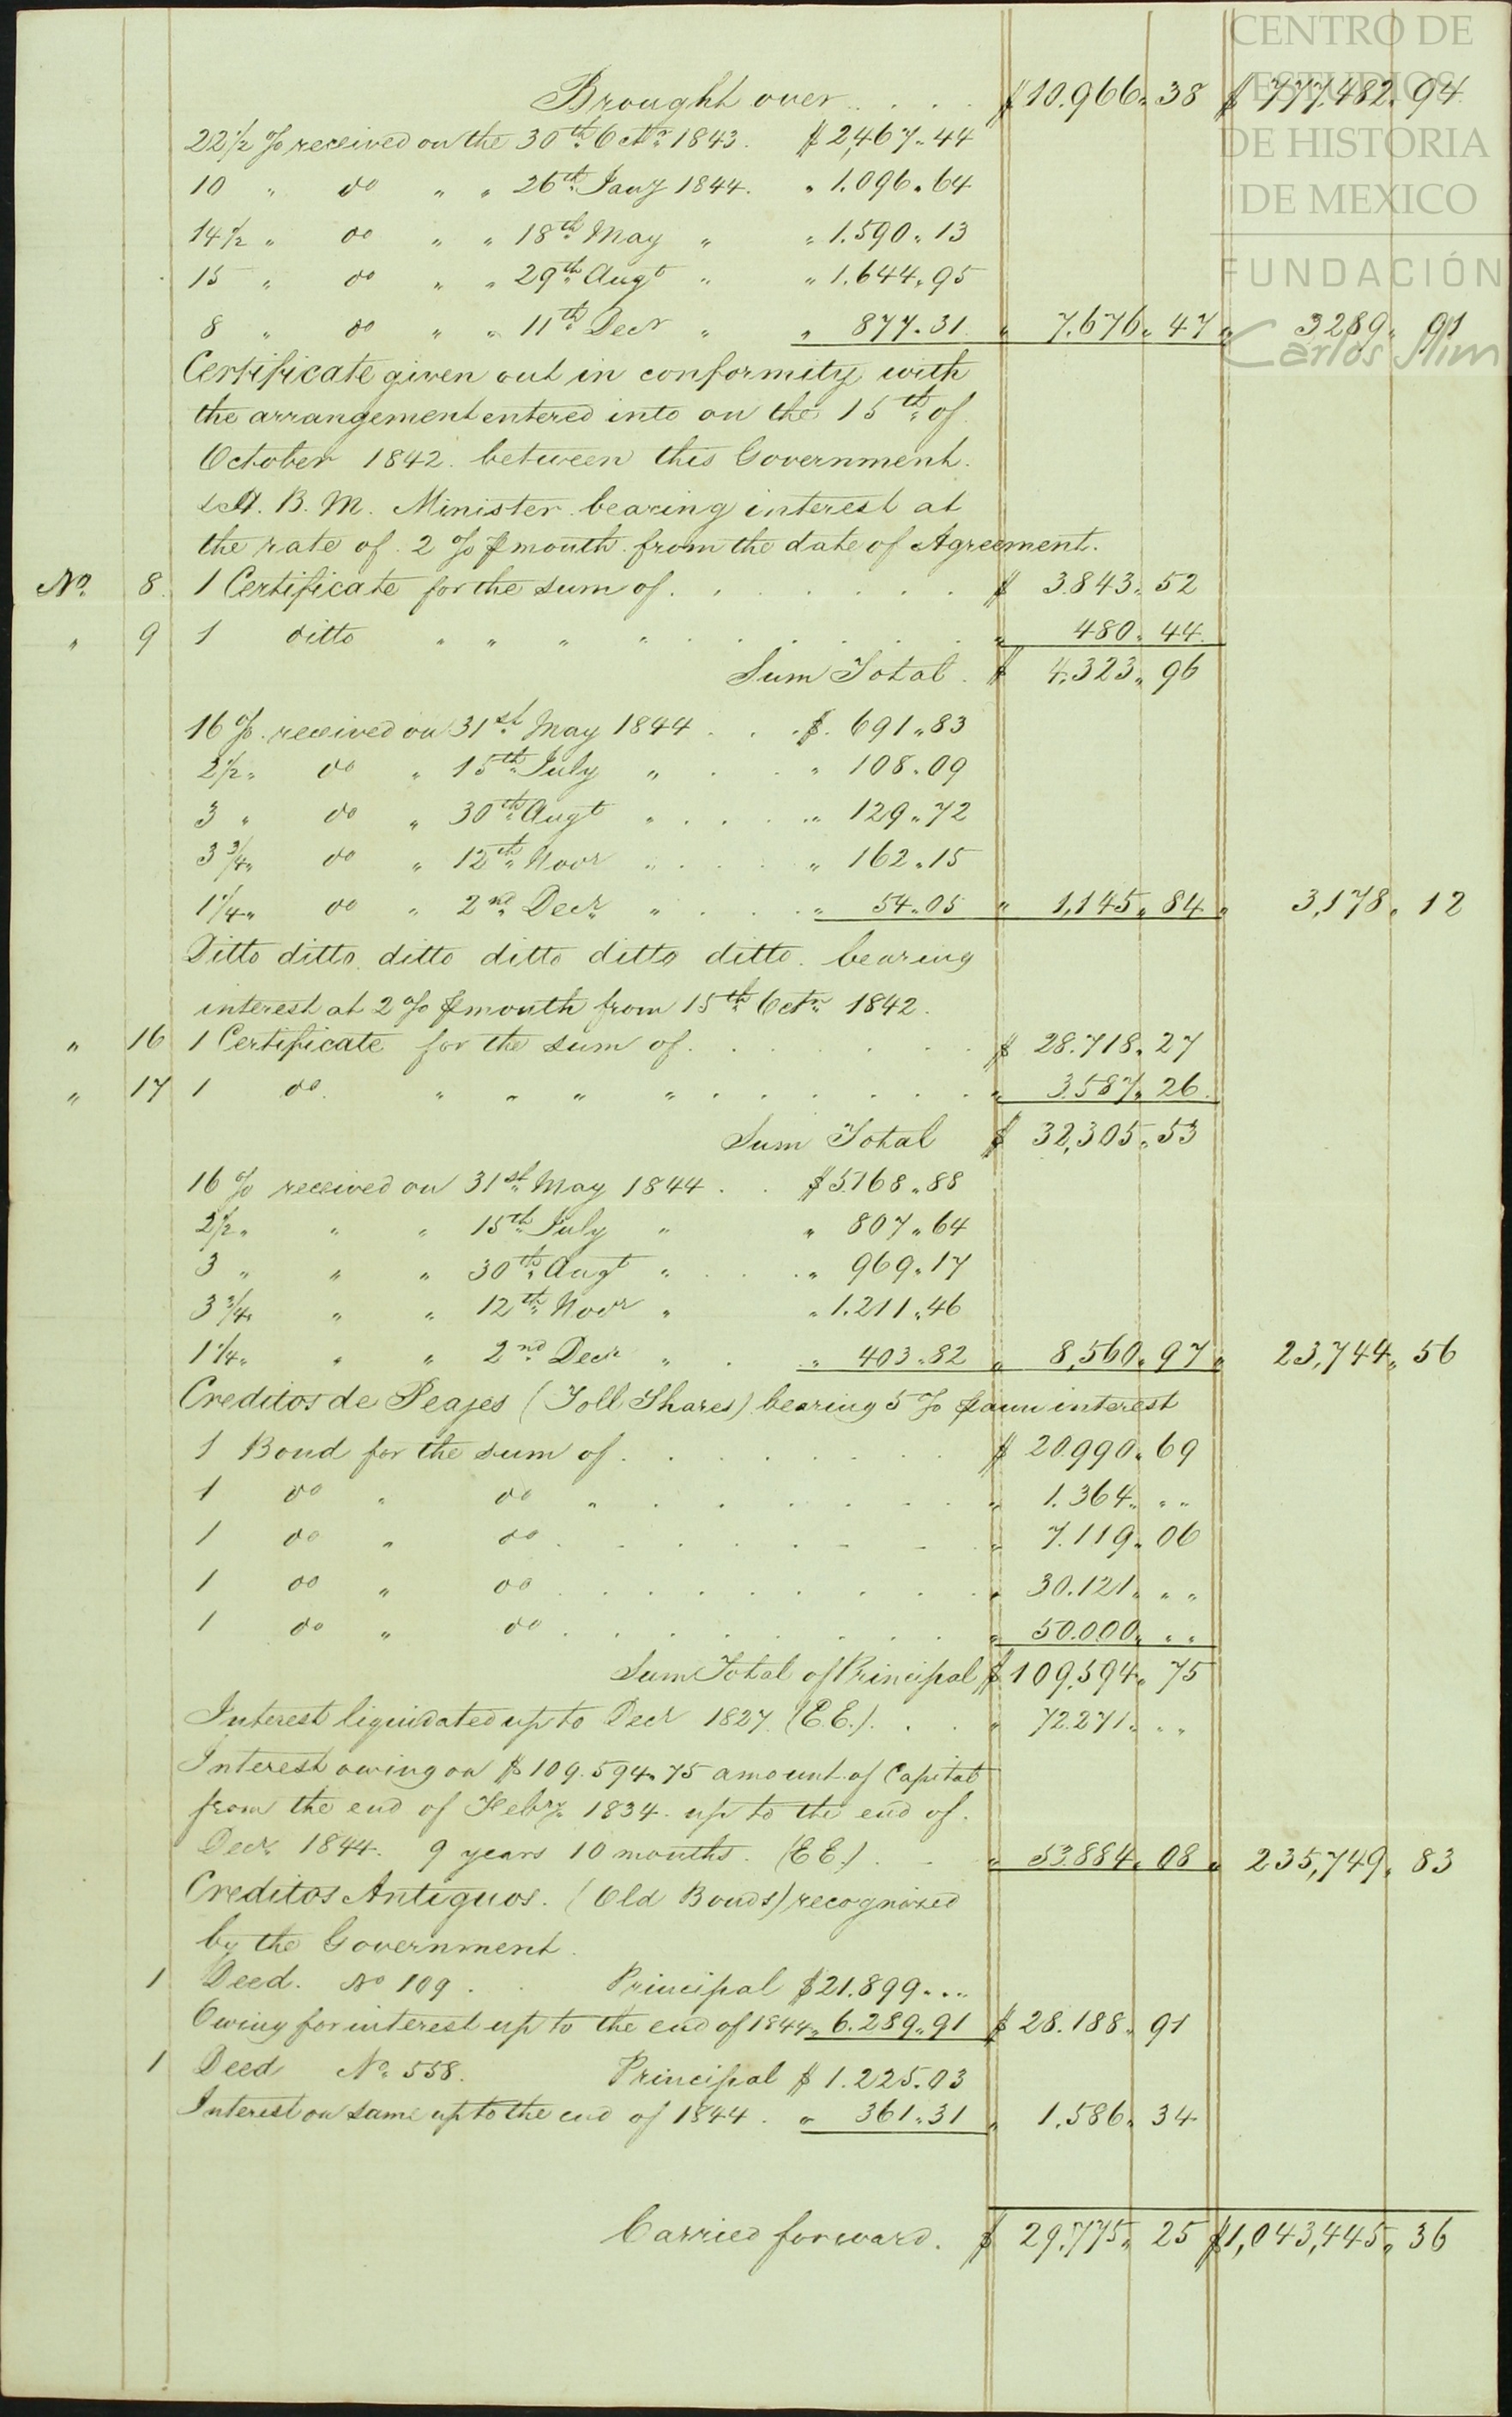 CENTRO DE
ESTUDIOS
DE HISTORIA
DE MEXICO
FUNDACIÓN
Carlos Slim
Brought over . . . . $10.966.38 $777,482.94
22½ % received on the 30th Octr 1843. $2,467.44
10 " do " " 26th Jany 1844. " 1.096.64
14½ " do " " 18th May " " 1.590.13
15 " do " " 29th Augt " " 1.644.95
8 " do " " 11th Decr " " 877.31 " 7.676.47 " 3289.91
Certificate given out in conformity with
the arrangement entered into on the 15th of
October 1842. between this Government.
& H. B. M. Minister bearing interest at
the rate of 2 % p month from the date of Agreement.
No. 8. 1 Certificate for the sum of . . . . . . . $ 3.843.52
" 9 1 ditto " " " " . . . . . . " 480.44.
Sum Total . $ 4.323.96
16 %. received on 31st May 1844 . . . $. 691.83
2½ " do " 15th July " . . " 108.09
3 " do " 30th Augt " . . . . " 129.72
3¾ " do " 12th Novr " . . . " 162.15
1¼ " do " 2nd Decr " . . . " 54.05 " 1,145.84 " 3,178.12
Ditto ditto ditto ditto ditto ditto. bearing
interest at 2 % p month from 15th Octr 1842.
" 16 1 Certificate for the sum of . . . . . . $ 28.718.27
" 17 1 do. " " " " . . . . . . . " 3.587.26.
Sum Total $ 32,305.53
16 % received on 31st May 1844 . . $5168.88
2½ " " " 15th July " " 807.64
3 " " " 30th Augt " . . " 969.17
3¾ " " " 12th Novr " " 1.211.46
1¼ " " " 2nd Decr " . . " 403.82 " 8,560.97 " 23,744.56
Creditos de Peajes (Toll Shares) bearing 5 % p ann interest
1 Bond for the sum of . . . . . . . $ 20.990.69
1 do " do " . . . . . . . " 1.364. " "
1 do " do . . . . . . . . " 7.119.06
1 do " do . . . . . . . . " 30.121. " "
1 do " do . . . . . . . . " 50.000. " "
Sum Total of Principal $109.594.75
Interest liquidated up to Decr 1827. (E.E.). . . " 72.271. " "
Interest owing on $109.594.75 amount of Capital
from the end of Febry. 1834. up to the end of.
Decr. 1844. 9 years 10 months. (E E.) . . " 53.884.08 " 235,749.83
Creditos Antiguos. (Old Bonds) recognized
by the Government.
1 Deed. No 109 . . Principal $21.899. . .
Owing for interest up to the end of 1844 " 6.289.91 $ 28.188.91
1 Deed No. 558. Principal $ 1.225.03
Interest on same up to the end of 1844 . " 361.31 " 1.586.34
Carried forward. $ 29.775.25 $1,043,445.36